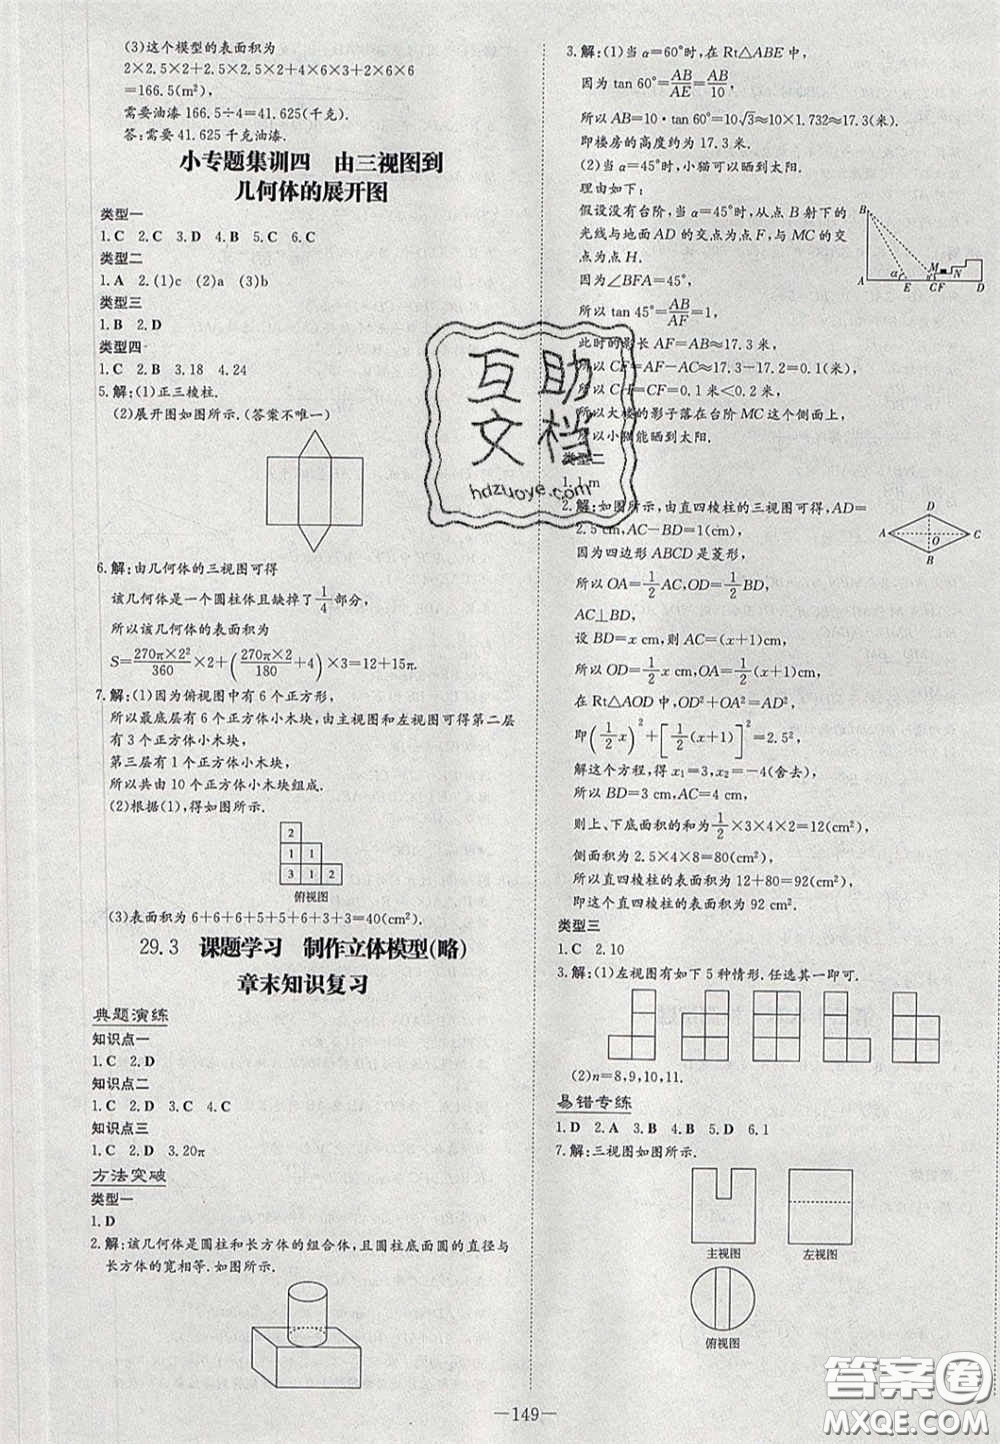 (3)这个模型的表面积为
2×2.5×2+2.5×2×2+4×6×3+2×6×6
=166.5(m²),
需要油漆 166.5÷4=41.625(千克).
答:需要 41.625 千克油漆.
小专题集训四 由三视图到
几何体的展开图
类型一
1.C 2.C 3.D 4.B 5.C 6.C
类型二
1.A 2.(1)c (2)a (3)b
类型三
1.B 2.D
类型四
1.C 2.B 3.18 4.24
5.解:(1)正三棱柱.
(2)展开图如图所示.(答案不唯一)
6.解:由几何体的三视图可得
该几何体是一个圆柱体且缺掉了1/4部分,
所以该几何体的表面积为
S=270π×2²/360×2+(270π×2/180+4)×3=12+15π.
7.解:(1)因为俯视图中有 6 个正方形,
所以最底层有 6 个正方体小木块,由主视图和左视图可得第二层
有 3 个正方体小木块,
第三层有 1 个正方体小木块,
所以共由 10 个正方体小木块组成.
(2)根据(1),得如图所示.
2
1 1
3 1 2
俯视图
(3)表面积为 6+6+6+5+5+6+3+3=40(cm²).
29.3 课题学习 制作立体模型(略)
章末知识复习
典题演练
知识点一
1.C 2.D
知识点二
1.C 2.D 3.C 4.C
知识点三
1.C 2.D 3.20π
方法突破
类型一
1.D
2.解:该几何体是圆柱和长方体的组合体,且圆柱底面圆的直径与
长方体的宽相等.如图所示.
3.解:(1)当 α=60°时,在 Rt△ABE 中,
因为 tan 60°=AB/AE=AB/10,
所以 AB=10·tan 60°=10√3≈10×1.732≈17.3(米).
即楼房的高度约为 17.3 米.
(2)当 α=45°时,小猫能晒到太阳.
理由如下:
假设没有台阶,当 α=45°时,从点 B 射下的
光线与地面 AD 的交点为点 F,与 MC 的交
点为点 H.
因为∠BFA=45°,
所以 tan 45°=AB/AF=1,
此时的影长 AF=AB≈17.3 米,
所以 CF=AF-AC≈17.3-17.2=0.1(米),
所以 CH=CF=0.1 米<0.2 米,
所以大楼的影子落在台阶 MC 这个侧面上,
所以小猫能晒到太阳.
B
M
N
α
A E CF D
类型二
1.1 m
2.解:如图所示,由直四棱柱的三视图可得,AD=
2.5 cm,AC-BD=1(cm),
因为四边形 ABCD 是菱形,
所以 OA=1/2AC,OD=1/2BD,
AC⊥BD,
设 BD=x cm,则 AC=(x+1)cm,
所以 OD=1/2x cm,OA=1/2(x+1)cm,
在 Rt△AOD 中,OD²+OA²=AD²,
即(1/2x)²+[1/2(x+1)]²=2.5²,
解这个方程,得 x₁=3,x₂=-4(舍去),
所以 BD=3 cm,AC=4 cm,
则上、下底面积的和为1/2×3×4×2=12(cm²),
侧面积为 2.5×4×8=80(cm²),
所以直四棱柱的表面积为 12+80=92(cm²),
即这个直四棱柱的表面积为 92 cm².
D
A O C
B
类型三
1.C 2.10
3.解:(1)左视图有如下 5 种情形.任选其一即可.
(2)n=8,9,10,11.
易错专练
1.D 2.A 3.B 4.B 5.D 6.1
7.解:三视图如图所示.
主视图 左视图
俯视图
—149—
互助
文档
hdzuoye.com
答案圈
MXQE.COM